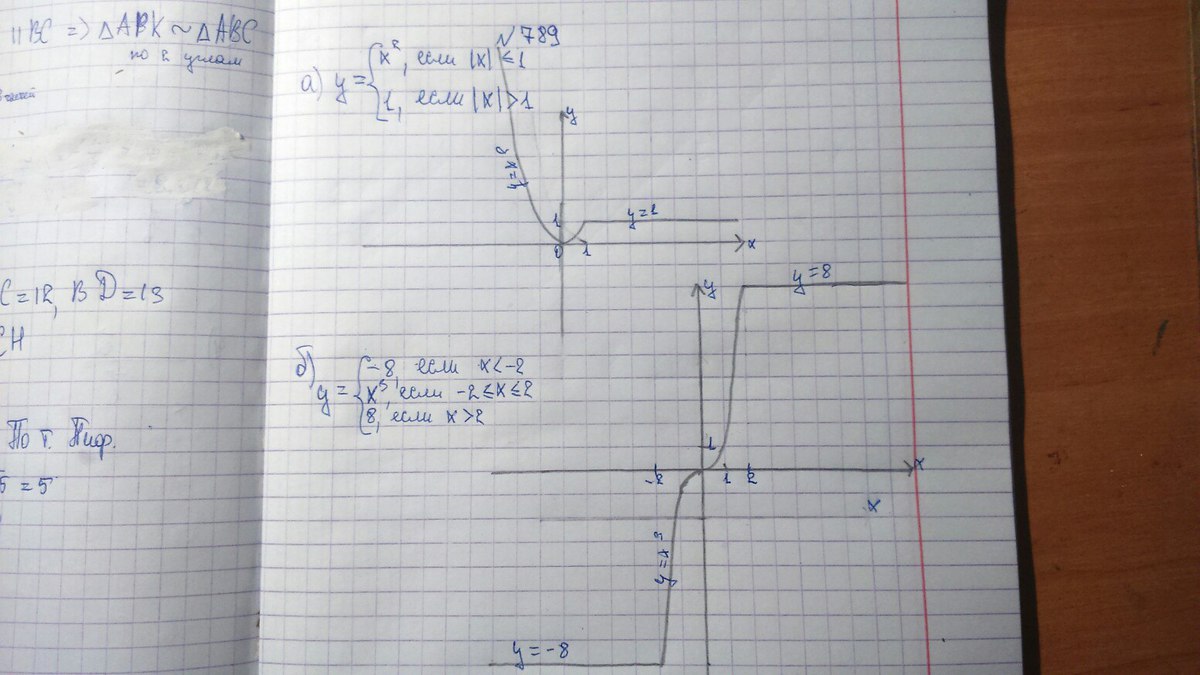 ІІ BC => △ABK ~ △ABC
по 2 углам
C=12, BD=13
CH
По т. Пиф.
5 = 5
№789
а) y = { x², если |x| ≤ 1
1, если |x| > 1
y
y=x²
1
y=1
0
1
x
б) y = { -8, если x<-2
x⁵, если -2≤x≤2
8, если x>2
y
y=8
1
-2
1
2
x
x
y=x³
y=-8